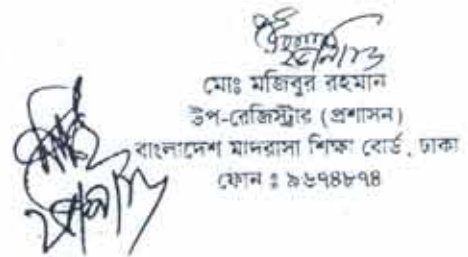 মোঃ মজিবুর রহমান
উপ-রেজিস্ট্রার (প্রশাসন)
বাংলাদেশ মাদরাসা শিক্ষা বোর্ড, ঢাকা
ফোন ঃ ৯৬৭৪৮৭৪